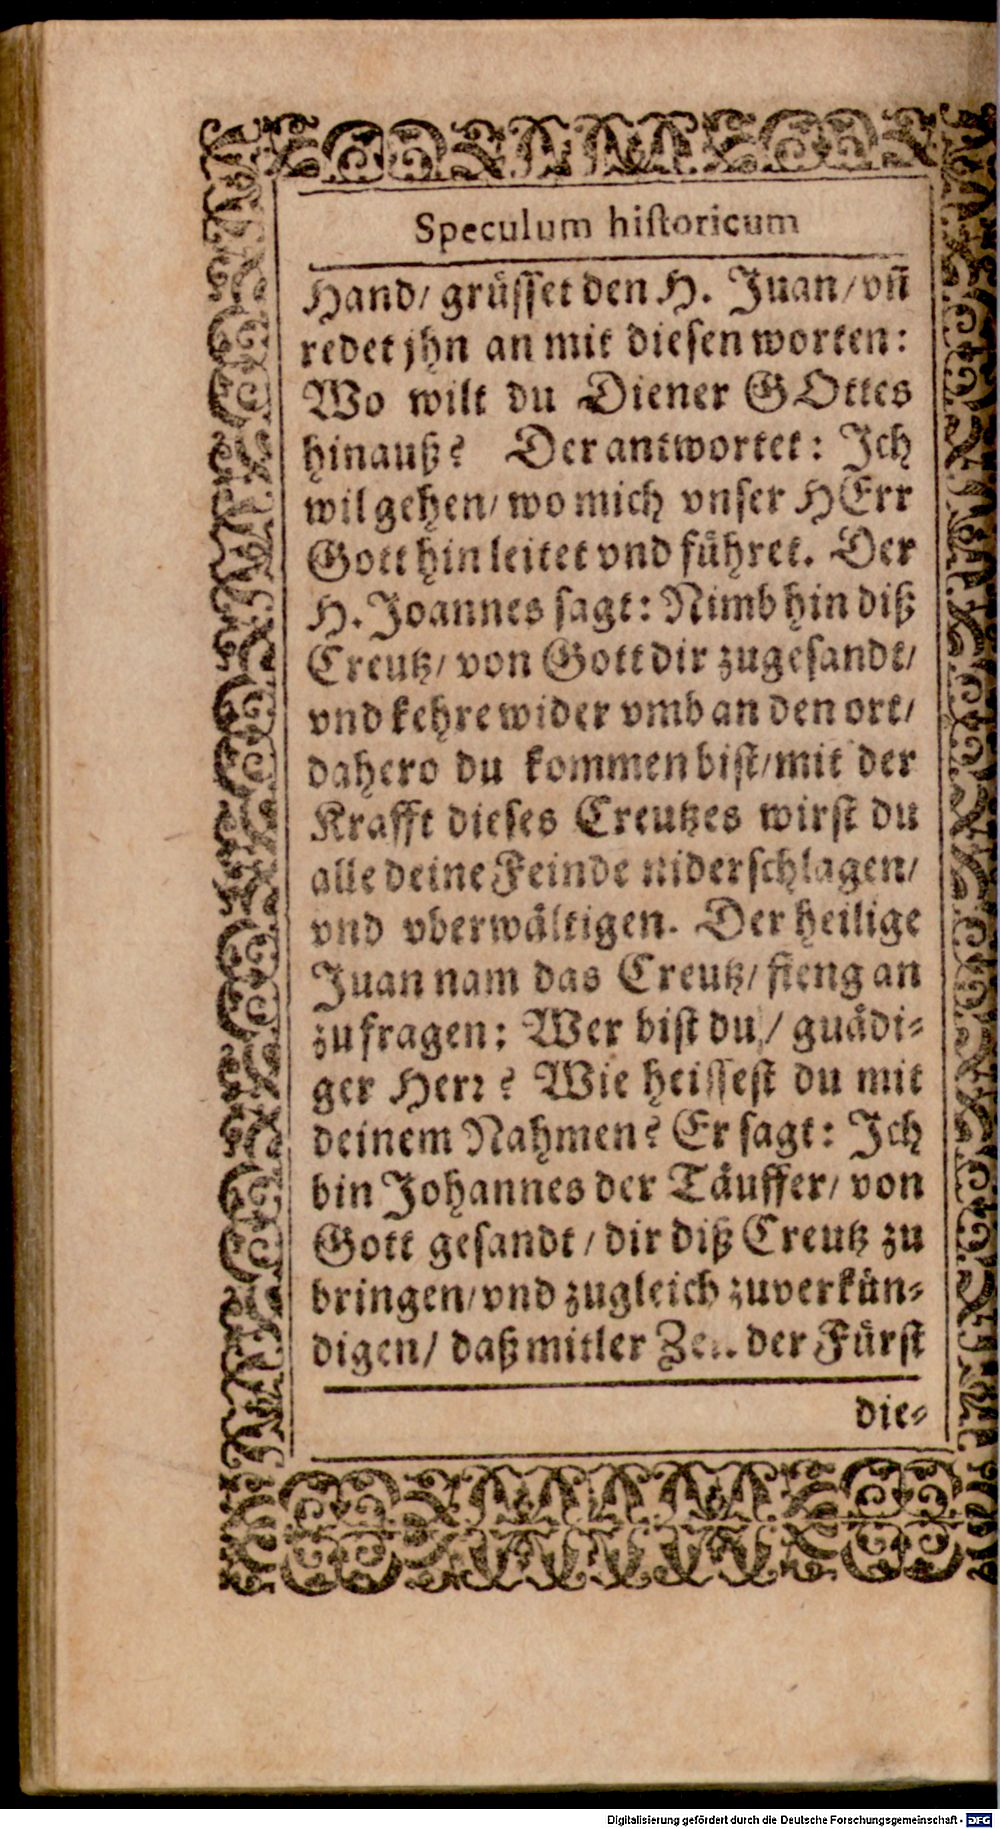 Speculum hiſtoricum
Hand/ grüſſet den H. Juan/ vñ
redet jhn an mit dieſen worten:
Wo wilt du Diener GOttes
hinauß? Der antwortet: Ich
wil gehen/ wo mich vnſer HErr
Gott hin leitet vnd führet. Der
H. Joannes ſagt: Nimb hin diß
Creutz/ von Gott dir zugeſandt/
vnd kehre wider vmb an den ort/
dahero du kommen biſt/ mit der
Krafft dieſes Creutzes wirſt du
alle deine Feinde niderſchlagen/
vnd vberwältigen. Der heilige
Juan nam das Creutz/ fieng an
zu fragen: Wer biſt du/ guädi⸗
ger Herr? Wie heiſſeſt du mit
deinem Nahmen? Er ſagt: Ich
bin Johannes der Täuffer/ von
Gott geſandt/ dir diß Creutz zu
bringen/ vnd zugleich zuverkün⸗
digen/ daß mitler der Fürſt
die⸗
Digitalisierung gefördert durch die Deutsche Forschungsgemeinschaft - DFG